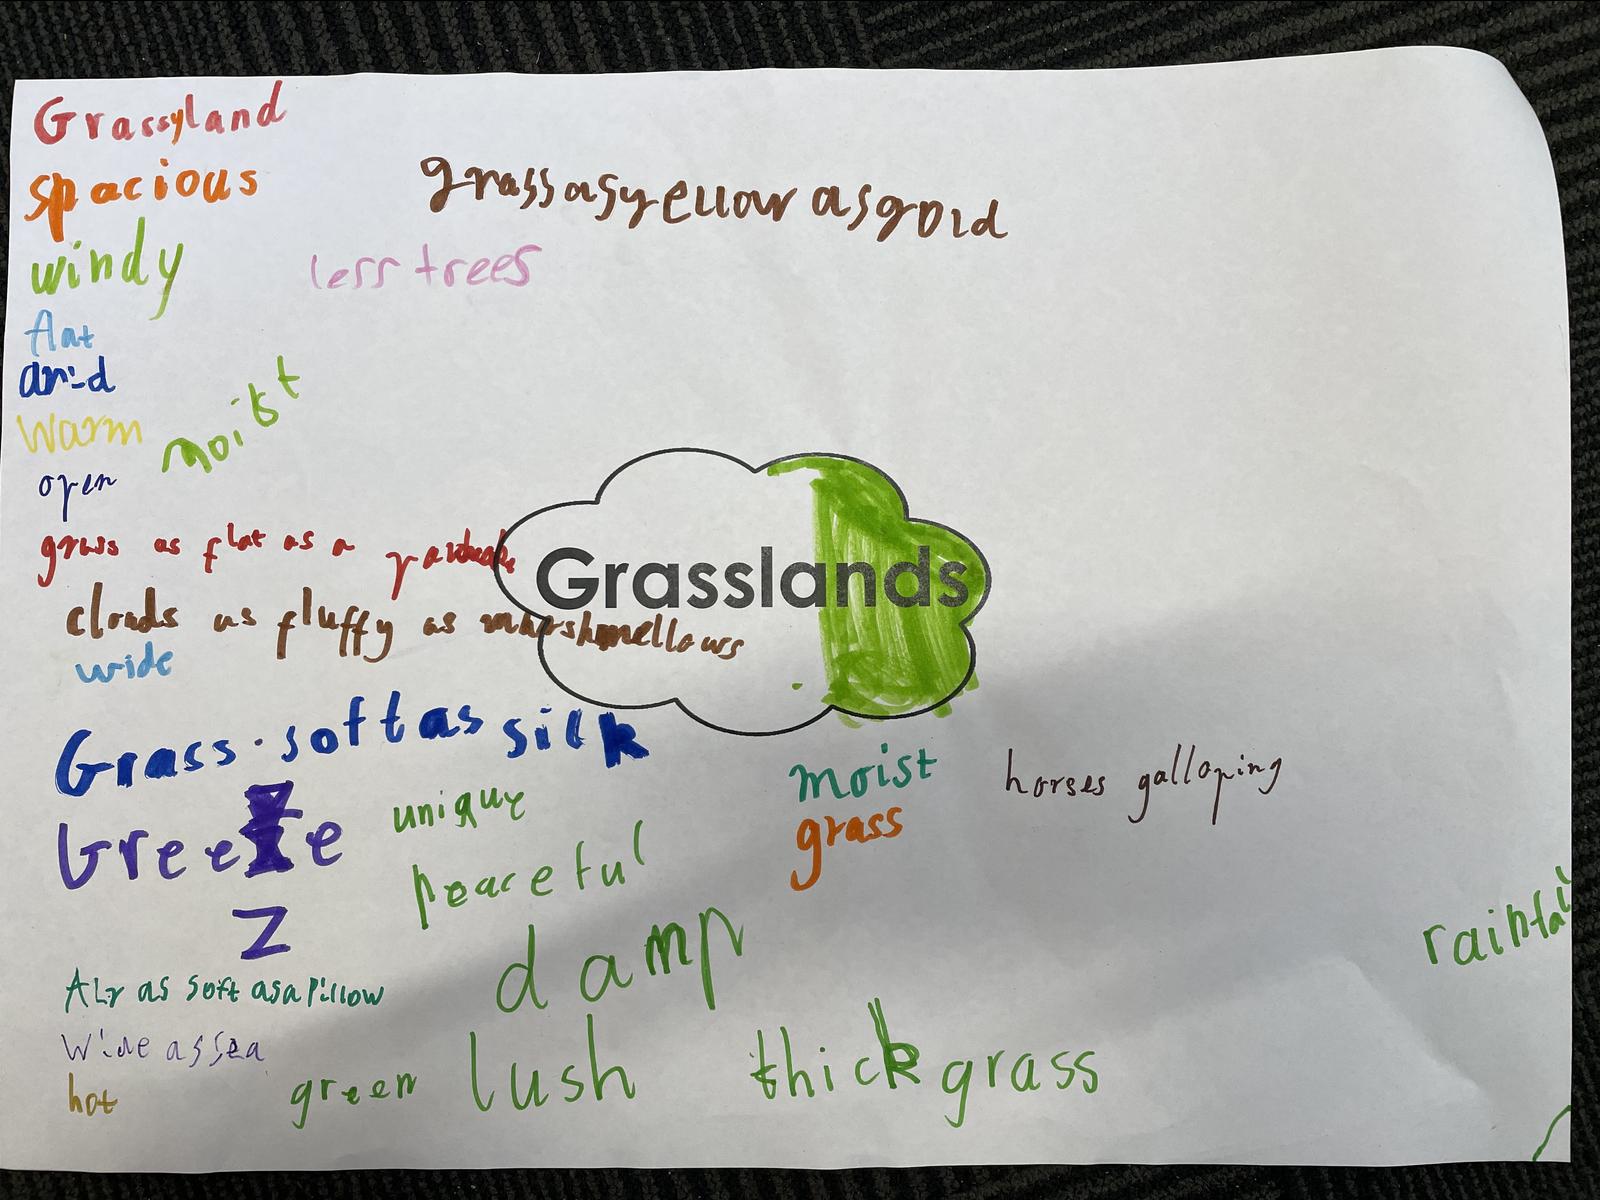 Grassyland
spacious
grass as yellow as gold
windy
less trees
flat
arid
warm
moist
open
grass as flat as a
Grasslands
clouds as fluffy as marshmellows
wide
Grass soft as silk
Breeze
Z
unique
peaceful
moist
grass
horses galloping
damp
rainfal
Air as soft as a pillow
Wide as sea
hot
green
lush
thick grass